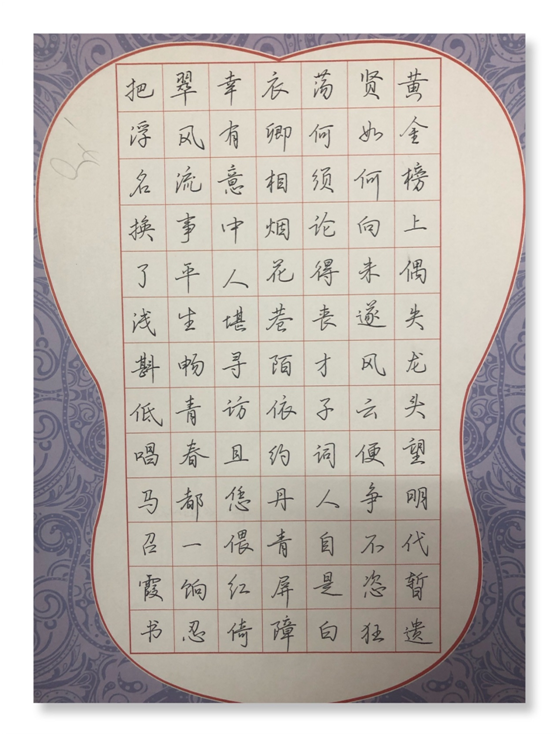 黄金榜上偶失龙头望明代暂遗
贤如何向未遂风云便争不恣狂
荡何须论得丧才子词人自是白
衣卿相烟花巷陌依约丹青屏障
幸有意中人堪寻访且恁偎红倚
翠风流事平生畅青春都一饷忍
把浮名换了浅斟低唱马召霞书